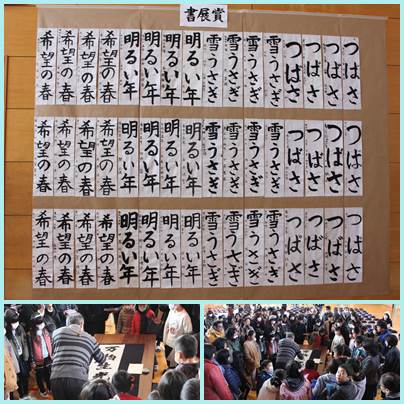 書展賞
つばさ
つばさ
つばさ
つばさ
雪うさぎ
雪うさぎ
雪うさぎ
雪うさぎ
明るい年
明るい年
明るい年
明るい年
希望の春
希望の春
希望の春
希望の春
つばさ
つばさ
つばさ
つばさ
雪うさぎ
雪うさぎ
雪うさぎ
雪うさぎ
明るい年
明るい年
明るい年
明るい年
希望の春
希望の春
希望の春
希望の春
つばさ
つばさ
つばさ
つばさ
雪うさぎ
雪うさぎ
雪うさぎ
雪うさぎ
明るい年
明るい年
明るい年
明るい年
希望の春
希望の春
希望の春
希望の春